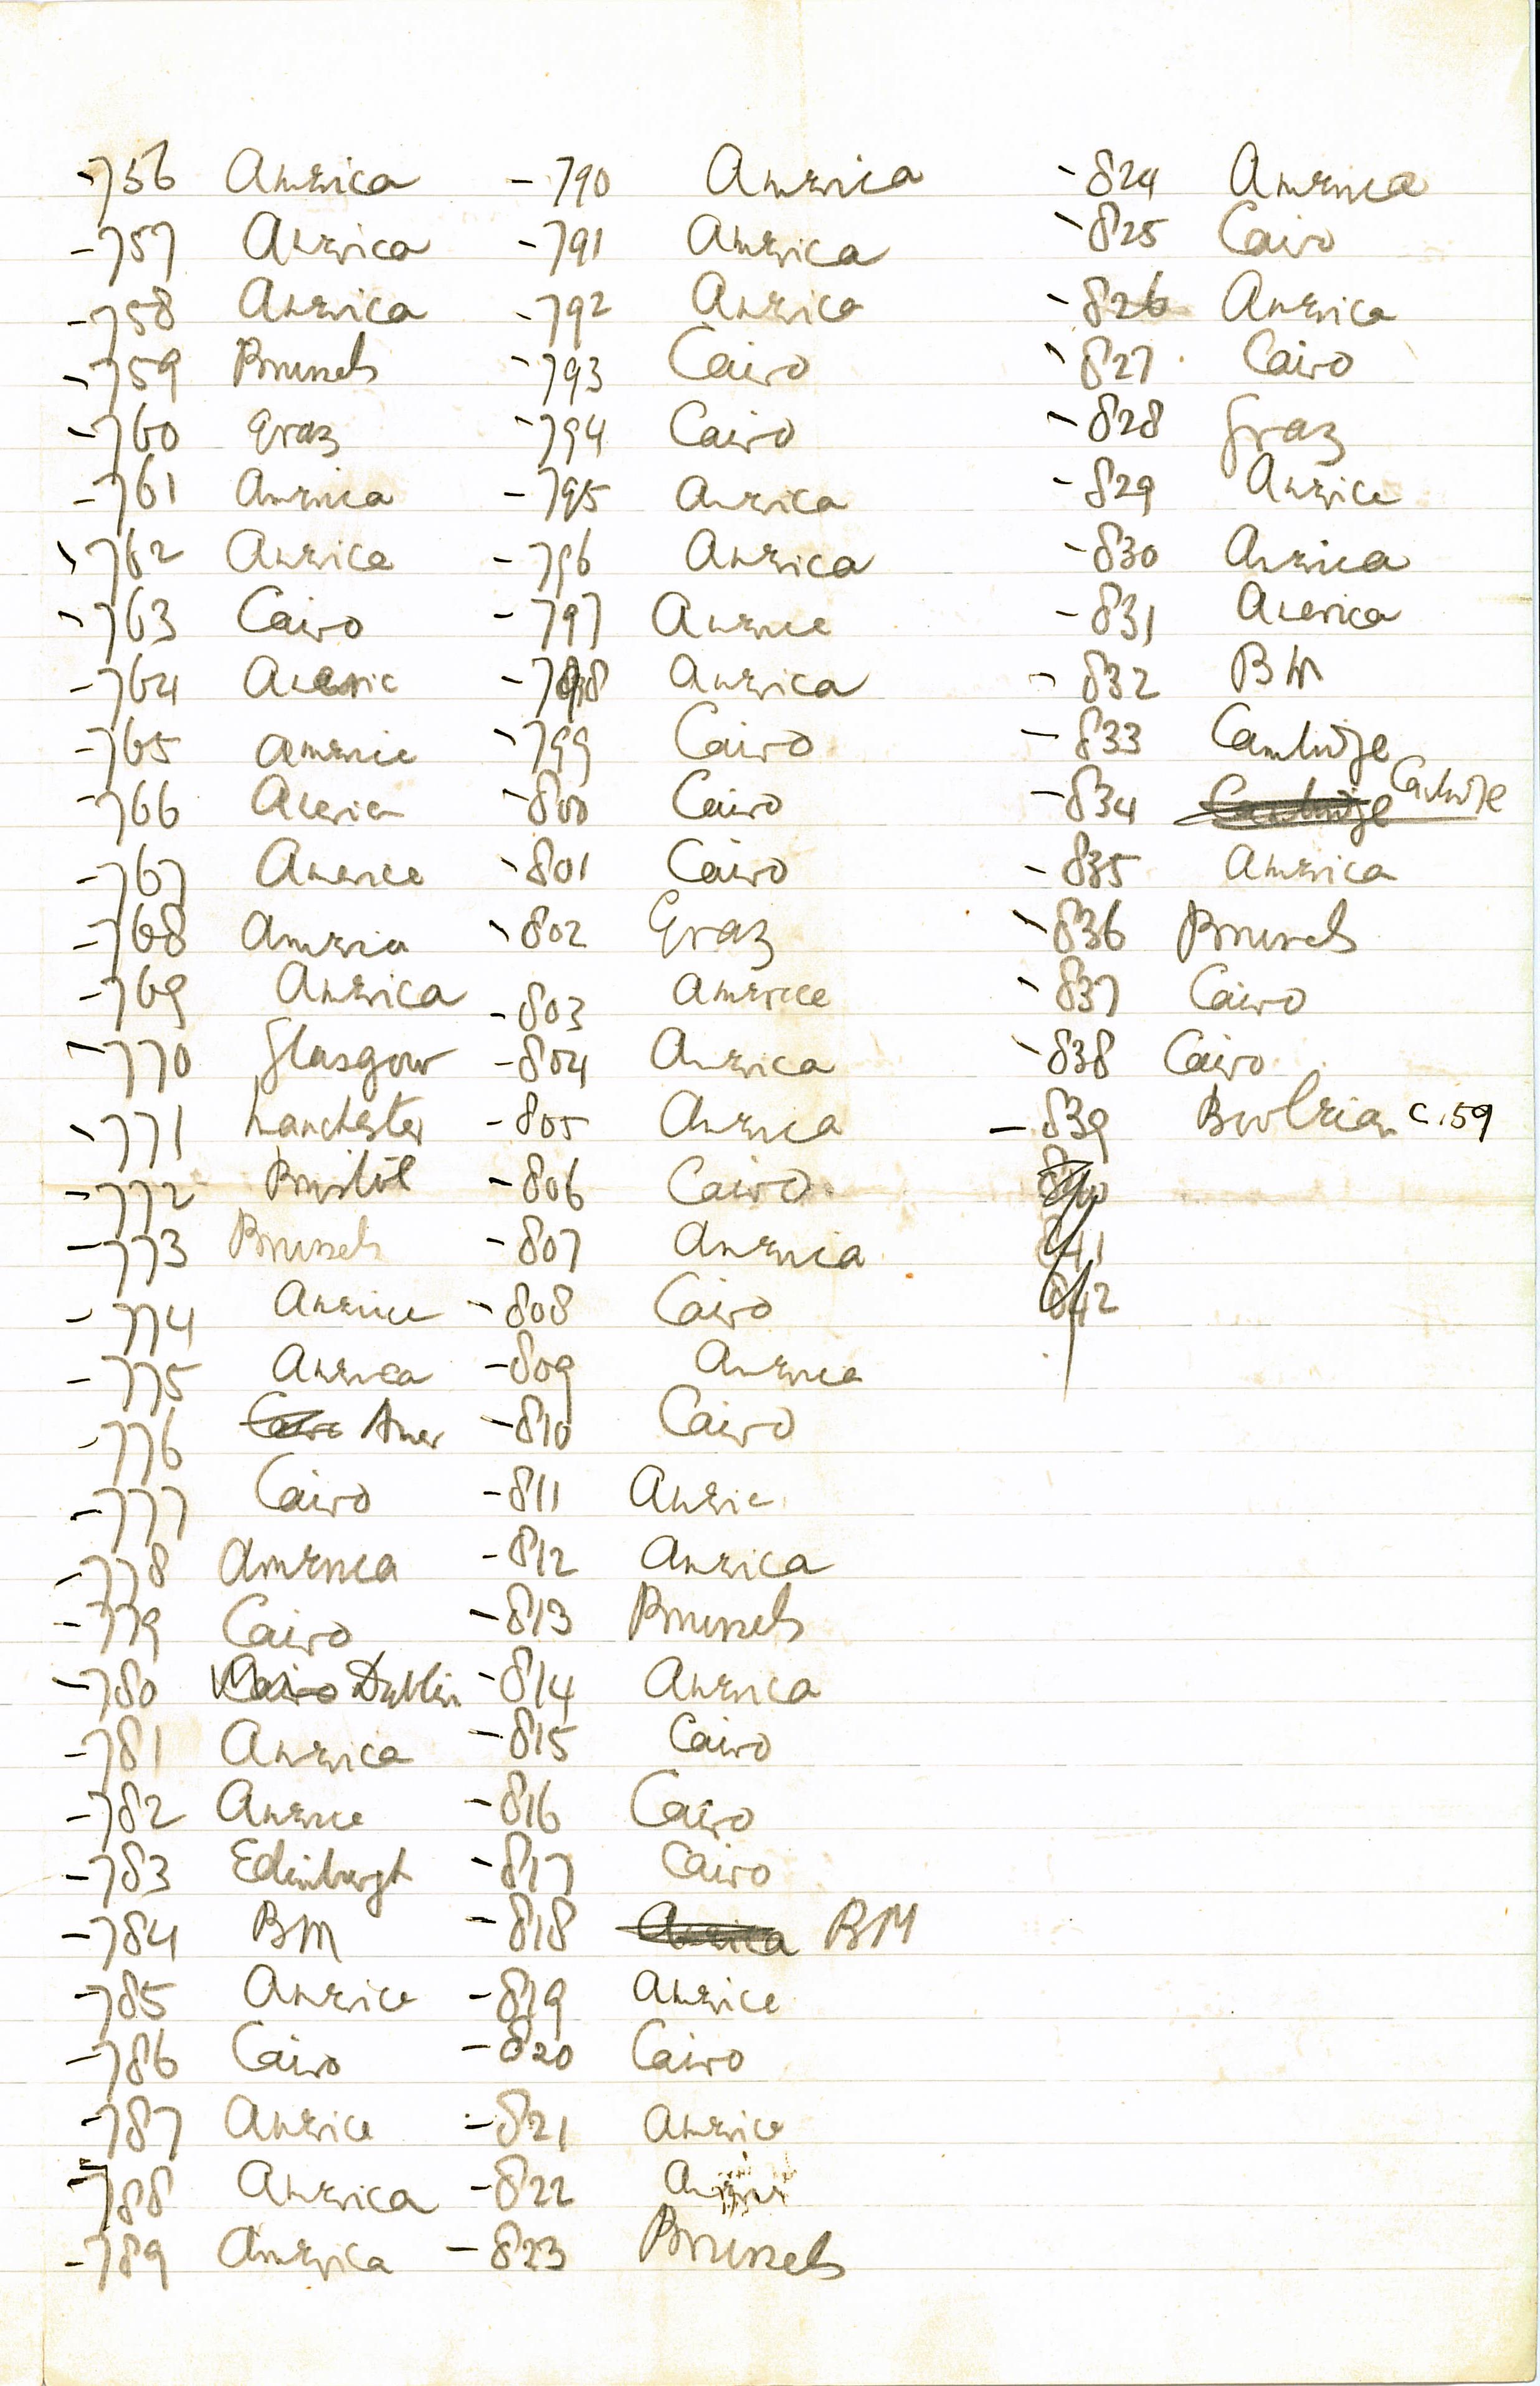 -756 America
-757 America
-758 America
-759 Brussels
-760 Graz
-761 America
-762 America
-763 Cairo
-764 Americ
-765 Americ
-766 America
-767 America
-768 America
-769 America
-770 Glasgow
-771 Manchester
-772 Bristol
-773 Brussels
-774 America
-775 America
-776 Cairo Amer
-777 Cairo
-778 America
-779 Cairo
-780 Cairo Dublin
-781 America
-782 America
-783 Edinburgh
-784 BM
-785 America
-786 Cairo
-787 America
-788 America
-789 America
-790 America
-791 America
-792 America
-793 Cairo
-794 Cairo
-795 America
-796 America
-797 America
-798 America
-799 Cairo
-800 Cairo
-801 Cairo
-802 Graz
-803 America
-804 America
-805 America
-806 Cairo
-807 America
-808 Cairo
-809 America
-810 Cairo
-811 Americ
-812 America
-813 Brussels
-814 America
-815 Cairo
-816 Cairo
-817 Cairo
-818 America BM
-819 America
-820 Cairo
-821 America
-822
-823 Brussels
-824 America
-825 Cairo
-826 America
-827 Cairo
-828 Graz
-829 America
-830 America
-831 America
-832 BM
-833 Cambridge
-834 Cambridge Cambridge
-835 America
-836 Brussels
-837 Cairo
-838 Cairo
-839 c.159
840
841
842